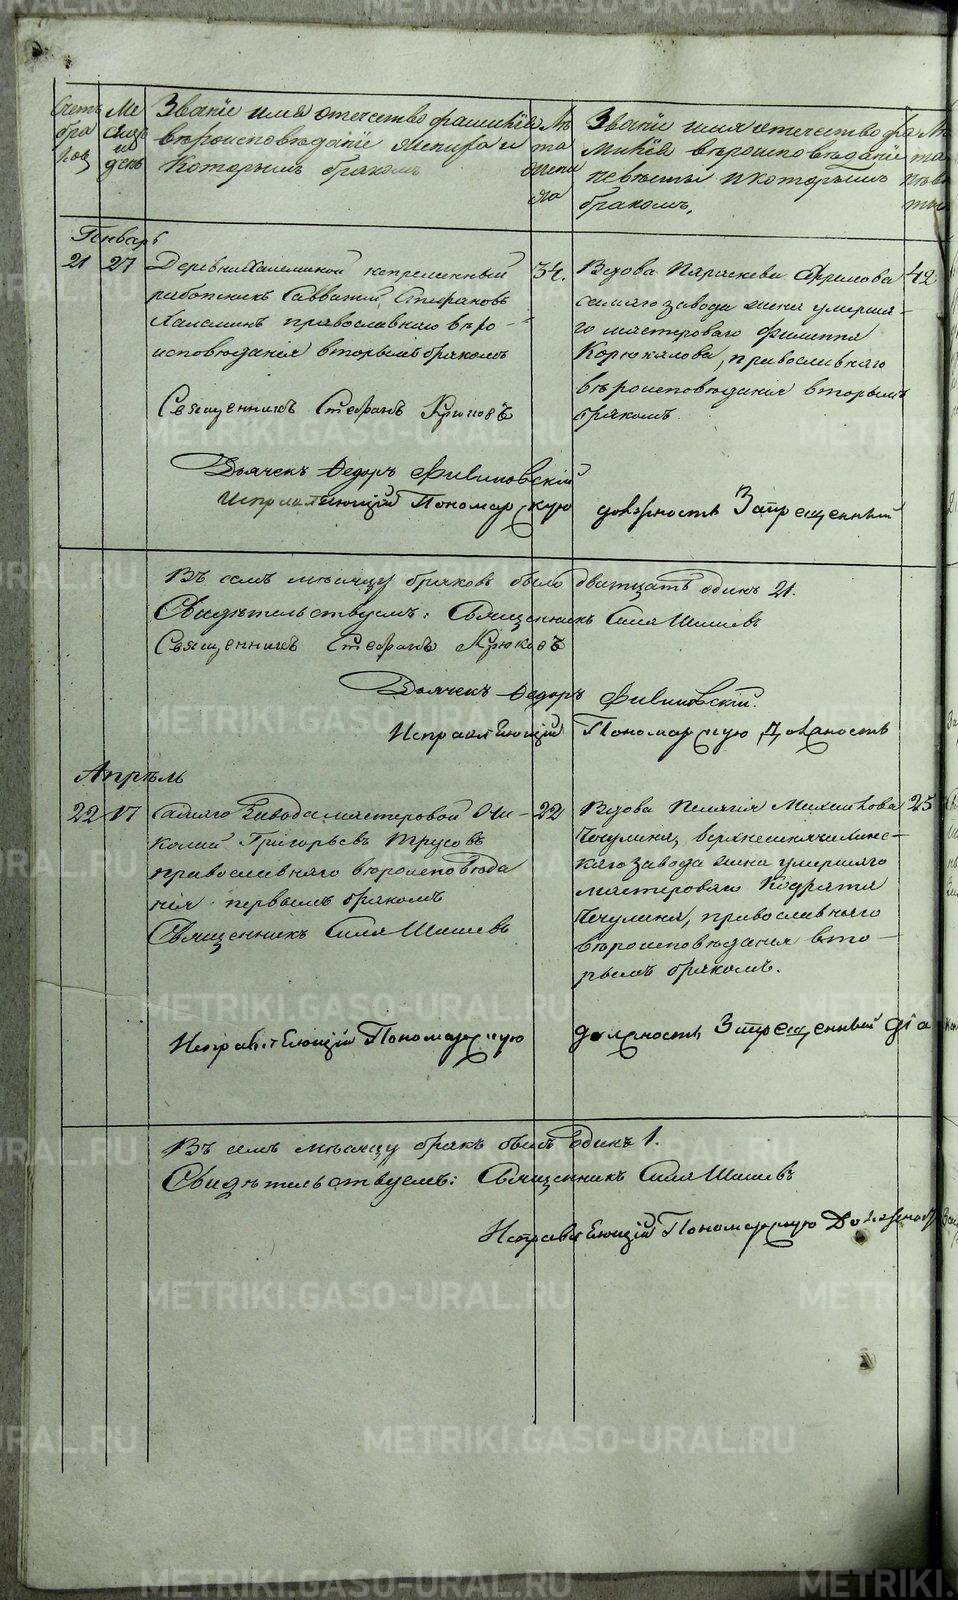 Счетъ бра ков
Ме сяцъ и день
Званіе имя отечество фамилія
вѣроисповѣданіе жениха и
которымъ бракомъ
Лѣ та жени ха
Званіе имя отечество фа
милія вѣроисповѣданіе
невѣсты и которымъ
бракомъ,
Лѣ та невѣ сты
Генварь
21 27 Деревни непременный 34.
работникъ Савватій Стефановъ
православнаго вѣро-
исповѣданія вторымъ бракомъ
Священникъ Стефанъ Крюковъ
Дьячекъ Федоръ Фивиловскій
Исправляющій Пономарскую должность Запрещенный
Вдова Параскева 42
завода жена умерша-
го мастероваго Филиппа
Корюкалова, православнаго
вѣроисповѣданія вторымъ
бракомъ.
Въ семъ мѣсяцу браковъ было дватцать одинъ 21.
Свидѣтельствуемъ: Священникъ Илья Шишевъ
Священникъ Стефанъ Крюковъ
Дьячекъ Федоръ Фивиловскій.
Исправляющій Пономарскую Должность
Апрѣль
22 17 завода мастеровой Ни- 22
колай Григорьевъ Трусовъ
православнаго вѣроисповѣда
нія первымъ бракомъ
Священникъ Илья Шишевъ
Вдова Пелагія Михайлова 25
Пичулина,
завода жена умершаго
мастероваго Кодрата
Пичулина, православнаго
вѣроисповѣданія вто-
рымъ бракомъ.
Исправляющій Пономарскую должность Запрещенный діа
Въ семъ мѣсяцу бракъ былъ одинъ 1.
Свидѣтельствуемъ: Священникъ Илья Шишевъ
Исправляющій Пономарскую Должность
METRIKI.GASO-URAL.RU